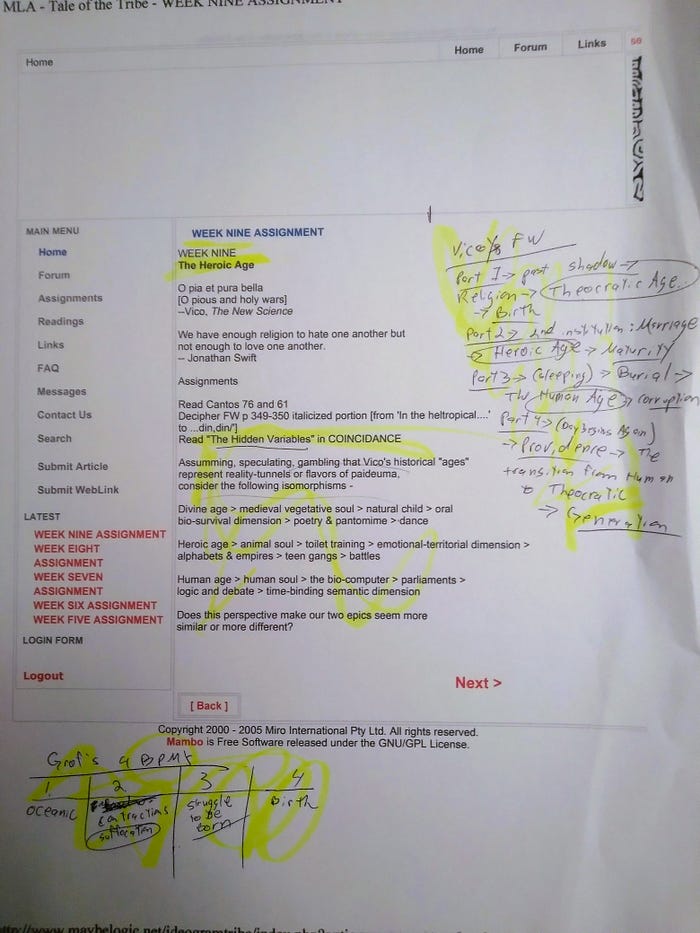 MLA - Tale of the Tribe - WEEK NINE ASSIGNMENT
Home
Home Forum Links
MAIN MENU
Home
Forum
Assignments
Readings
Links
FAQ
Messages
Contact Us
Search
Submit Article
Submit WebLink
LATEST
WEEK NINE ASSIGNMENT
WEEK EIGHT
ASSIGNMENT
WEEK SEVEN
ASSIGNMENT
WEEK SIX ASSIGNMENT
WEEK FIVE ASSIGNMENT
LOGIN FORM
Logout
WEEK NINE ASSIGNMENT
WEEK NINE
The Heroic Age
O pia et pura bella
[O pious and holy wars]
--Vico, The New Science
We have enough religion to hate one another but
not enough to love one another.
-- Jonathan Swift
Assignments
Read Cantos 76 and 61
Decipher FW p 349-350 italicized portion [from 'In the heltropical....'
to ...din,din/']
Read "The Hidden Variables" in COINCIDANCE
Assumming, speculating, gambling that Vico's historical "ages"
represent reality-tunnels or flavors of paideuma,
consider the following isomorphisms -
Divine age > medieval vegetative soul > natural child > oral
bio-survival dimension > poetry & pantomime > dance
Heroic age > animal soul > toilet training > emotional-territorial dimension >
alphabets & empires > teen gangs > battles
Human age > human soul > the bio-computer > parliaments >
logic and debate > time-binding semantic dimension
Does this perspective make our two epics seem more
similar or more different?
Next >
[ Back ]
Copyright 2000 - 2005 Miro International Pty Ltd. All rights reserved.
Mambo is Free Software released under the GNU/GPL License.
FW
Part I → past shadow →
Religion → Theocratic Age.
→ Birth
Part 2 → 2nd institution: Marriage
→ Heroic Age → Maturity
Part 3 → (sleeping) → Burial →
The Human Age → corruption
Part 4 → (Day begins Again)
→ Providence → The
transition from Human
to Theocratic
→ Generation
Grof's 4 BPMs
1 2 3 4
oceanic
contractions
suffocation
struggle
to be
born
Birth